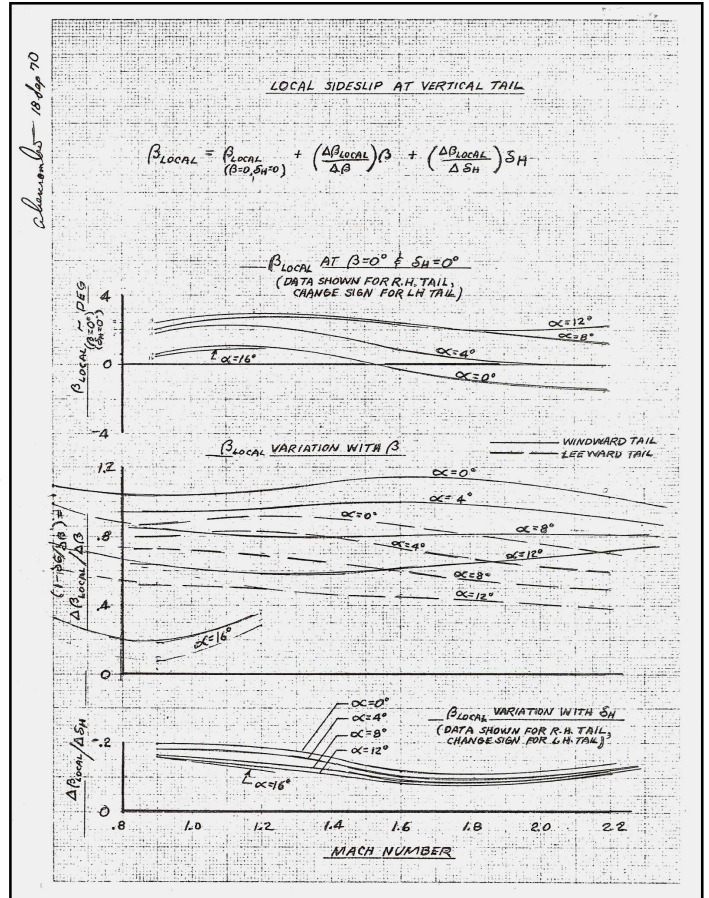 18 Sep 70
LOCAL SIDESLIP AT VERTICAL TAIL
βLOCAL = βLOCAL (β=0, δH=0) + (ΔβLOCAL/Δβ)β + (ΔβLOCAL/ΔδH)δH
βLOCAL AT β=0° & δH=0°
(DATA SHOWN FOR R.H. TAIL,
CHANGE SIGN FOR LH TAIL)
βLOCAL (β=0°) (δH=0°) ~ DEG
4
0
-4
α=12°
α=8°
α=4°
α=16°
α=0°
βLOCAL VARIATION WITH β
WINDWARD TAIL
LEEWARD TAIL
ΔβLOCAL/Δβ
1.2
.8
.4
0
α=0°
α=4°
α=0°
α=8°
α=4°
α=12°
α=8°
α=12°
α=16°
βLOCAL VARIATION WITH δH
(DATA SHOWN FOR R.H. TAIL,
CHANGE SIGN FOR L.H. TAIL)
ΔβLOCAL/ΔδH
α=0°
α=4°
α=8°
α=12°
α=16°
.2
0
.8 1.0 1.2 1.4 1.6 1.8 2.0 2.2
MACH NUMBER